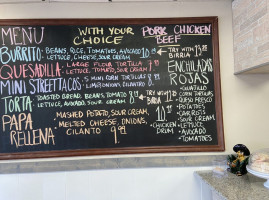 MENU
WITH YOUR CHOICE
PORK CHICKEN BEEF
BURRITO: BEANS, RICE, TOMATOES, AVOCADO
LETTUCE, CHEESE, SOUR CREAM
TRY WITH BIRRIA
QUESADILLA: LARGE FLOUR TORTILLA
LETTUCE, TOMATO, SOUR CREAM
MINI STREET TACOS: 5 MINI CORN TORTILLAS
CILANTRO
TORTA TOASTED BREAD, BEANS, TOMATO
LETTUCE, AVOCADO, SOUR CREAM
TRY WITH BIRRIA
PAPA RELLENA
MASHED POTATO, SOUR CREAM,
MELTED CHEESE, ONIONS,
CILANTO 9.99
CHICKEN DRUM
ENCHILADAS ROJAS
GUAJILLO
CORN TORTILLAS
QUESO FRESCO
POTATOES
CARROTS
SOUR CREAM
LETTUCE
AVOCADO
TOMATOES